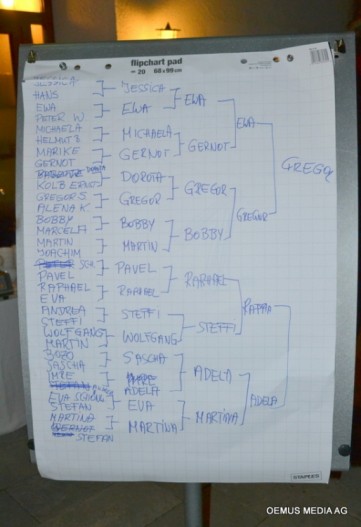 flipchart pad
20 68 x 99 cm
JESSICA
HANS
EWA
PETER W.
MICHAELA
HELMUT B
MARIKE
GERNOT
KOLB ERNST
GREGOR S.
ALENA K.
BOBBY
MARCELA
MARTIN
JOACHIM
PAVEL
RAPHAEL
EVA
ANDREA
STEFFI
WOLFGANG
MARTIN
BOBO
SASCHA
IMRE
EVA
STEFAN
MARTINA
STEFAN
JESSICA
EWA
MICHAELA
GERNOT
DOROTA
GREGOR
BOBBY
MARTIN
PAVEL
RAPHAEL
STEFFI
WOLFGANG
SASCHA
ADELA
EVA
MARTINA
EWA
GERNOT
GREGOR
BOBBY
RAPHAEL
STEFFI
ADELA
MARTINA
EWA
GREGOR
ADELA
GREGOR
STAPLES
OEMUS MEDIA AG